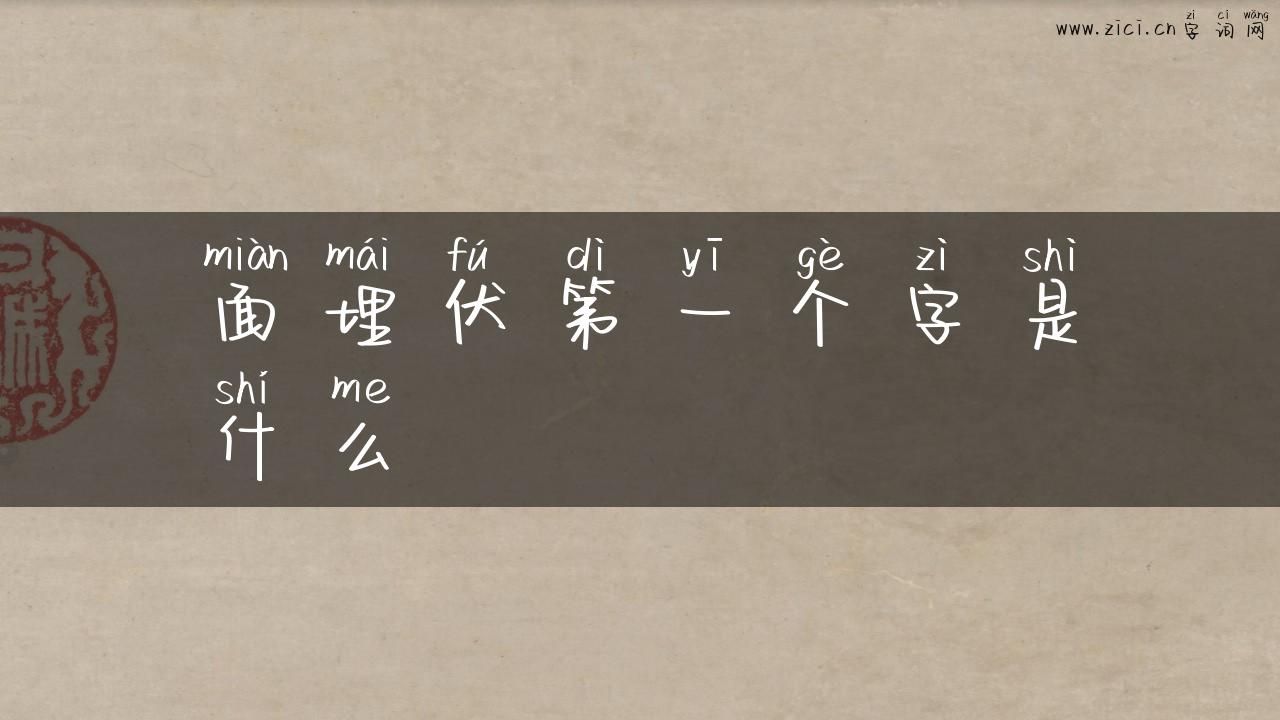 zì cí wǎng
www.zici.cn 字词网
miàn mái fú dì yī gè zì shì
面埋伏第一个字是
shí me
什么